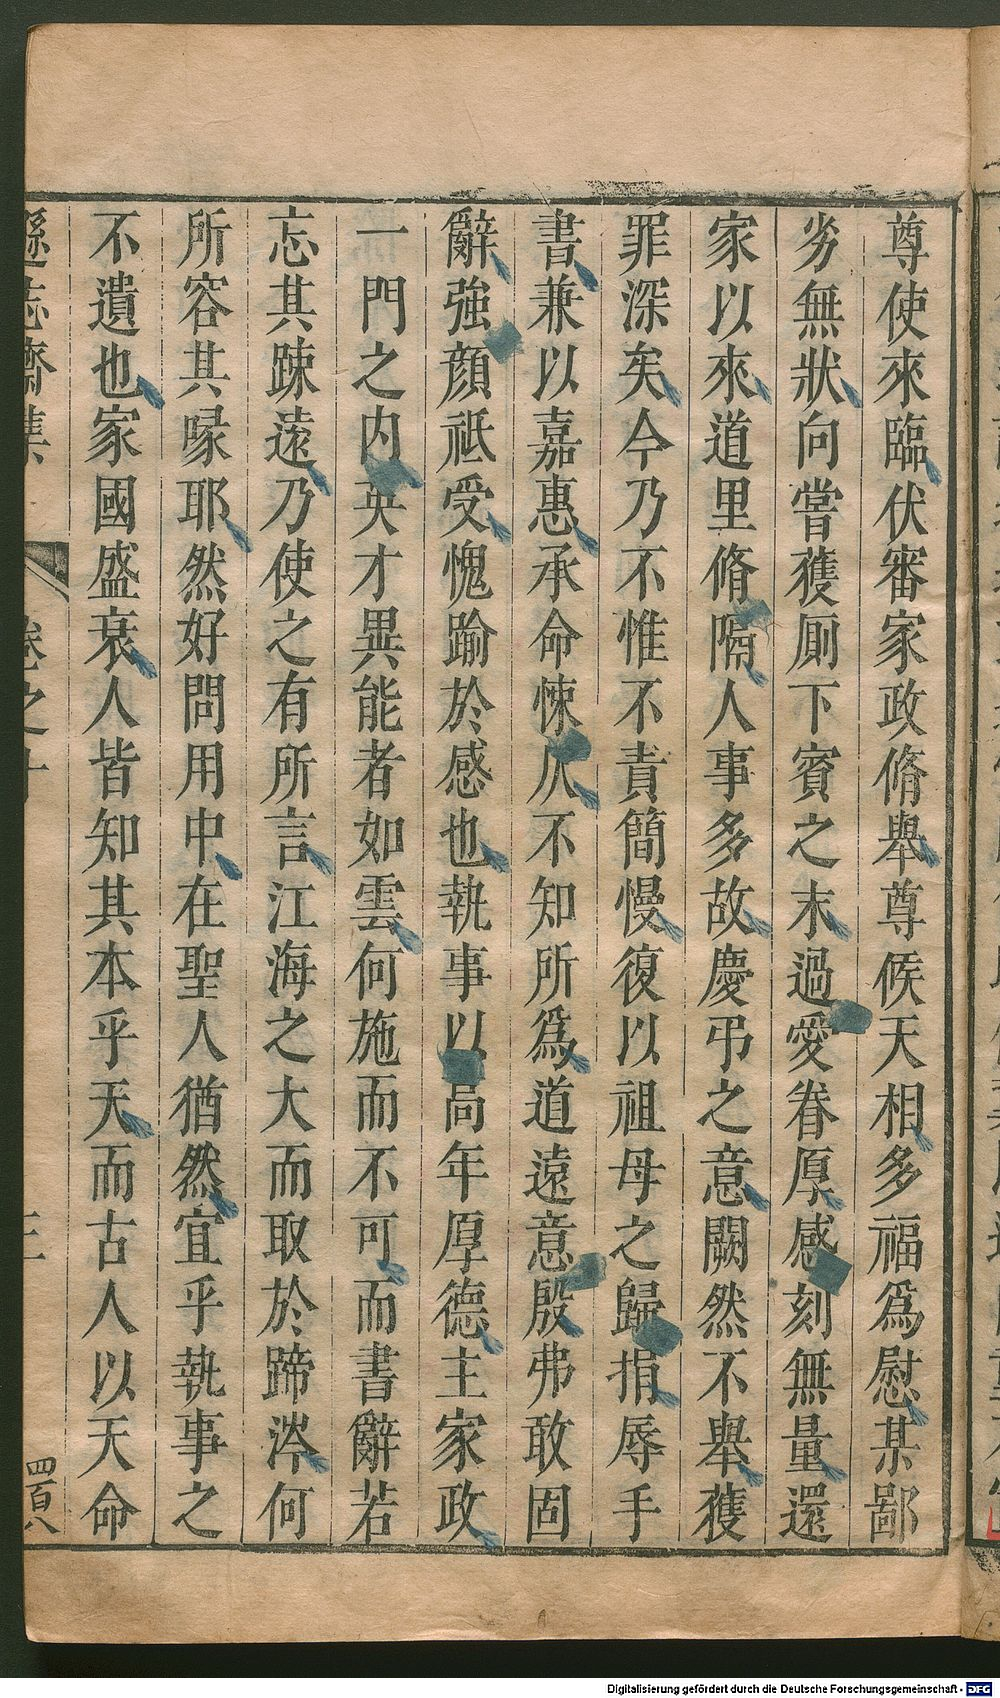 尊使來臨伏審家政脩舉尊候天相多福爲慰某鄙
劣無狀向嘗獲厠下賓之末過愛眷厚感刻無量還
家以來道里脩隔人事多故慶弔之意闕然不舉獲
罪深矣今乃不惟不責簡慢復以祖母之歸捐辱手
書兼以嘉惠承命悚仄不知所爲道遠意殷弗敢固
辭強顔祗受愧踰於感也執事以高年厚德主家政
一門之内英才異能者如雲何施而不可而書辭若
忘其踈遠乃使之有所言江海之大而取於蹄涔何
所容其喙耶然好問用中在聖人猶然宜乎執事之
不遺也家國盛衰人皆知其本乎天而古人以天命
遜志齋集
卷之十
三
四百八
Digitalisierung gefördert durch die Deutsche Forschungsgemeinschaft - DFG